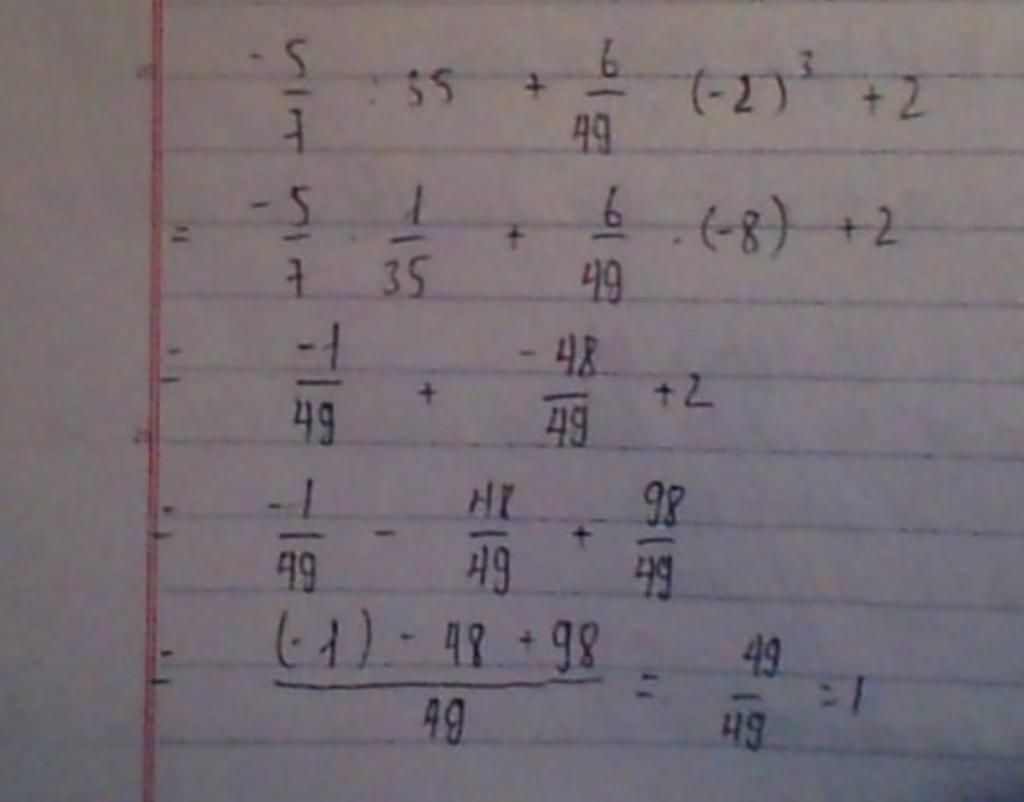 -5/7 : 35 + 6/49 (-2)³ + 2
= -5/7 · 1/35 + 6/49 . (-8) + 2
= -1/49 + -48/49 + 2
= -1/49 - 48/49 + 98/49
= (-1) - 48 + 98/49 = 49/49 = 1